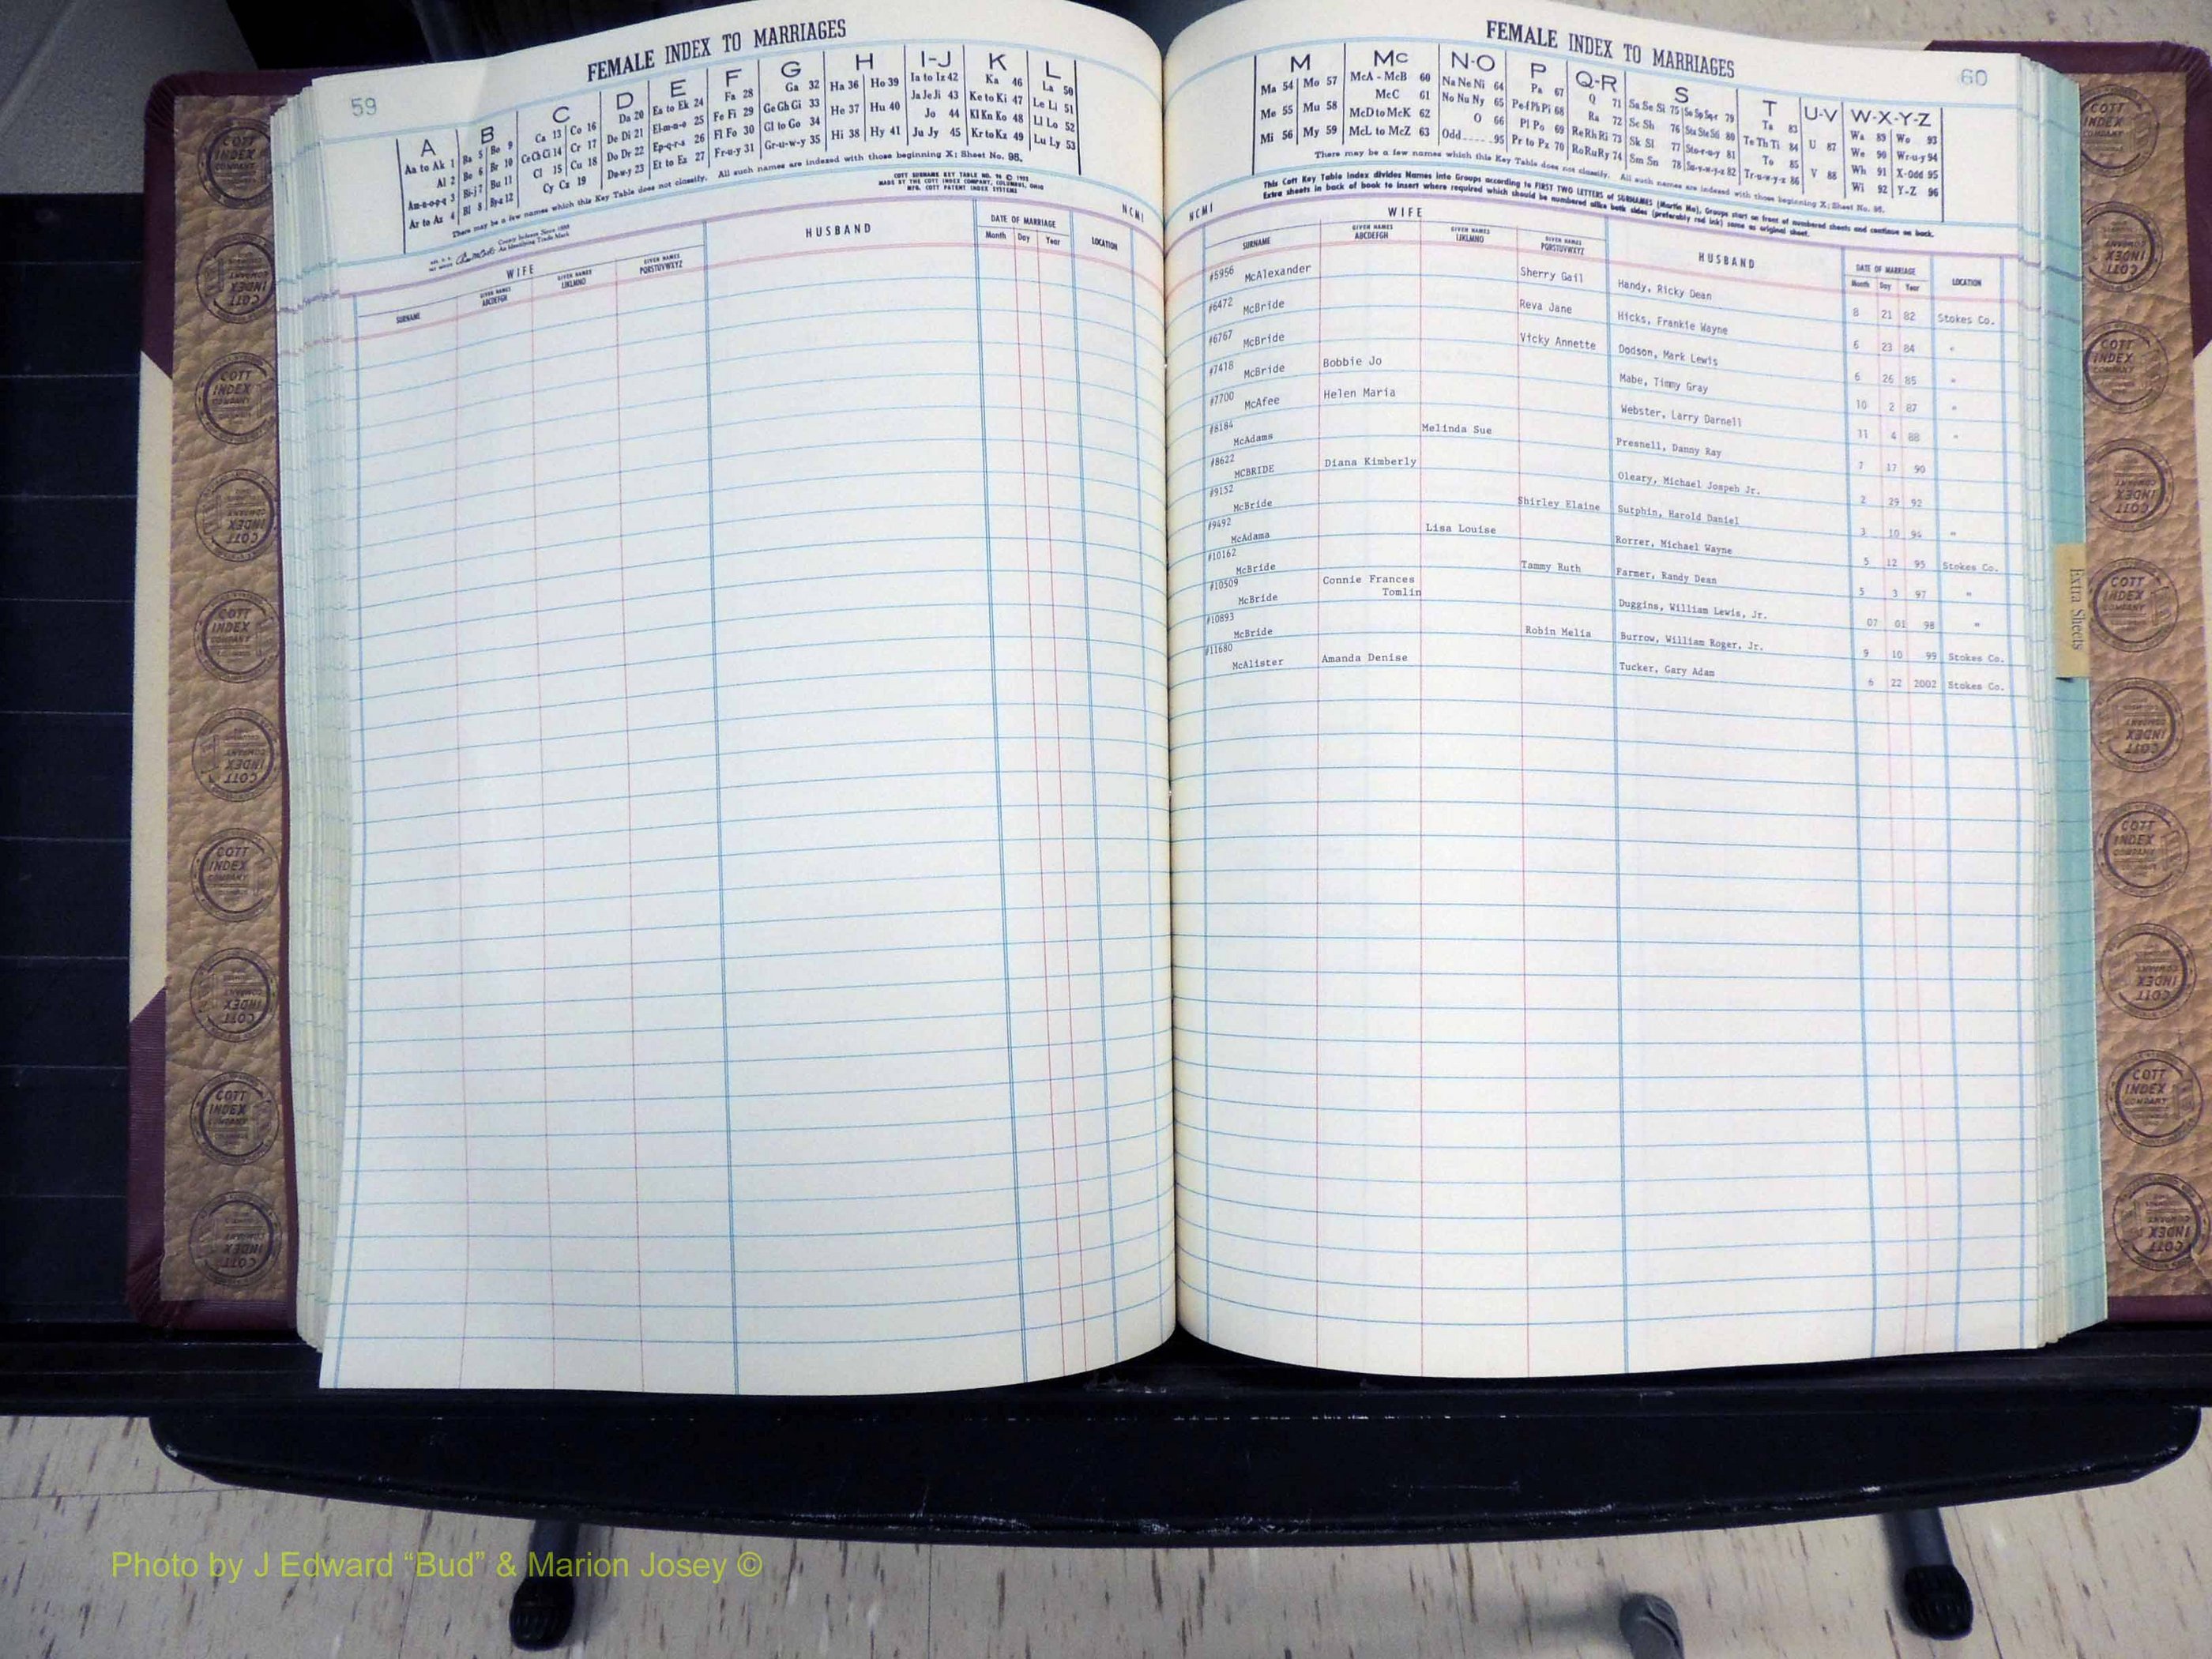 FEMALE INDEX TO MARRIAGES
59
A B C D E F G H I-J K L
Aa to Ak 1 Ba 5 Be 9 Ca 13 Co 16 Da 20 Ea to Ek 24 Fa 28 Ga 32 Ha 36 Ho 39 Ia to Iz 42 Ka 46 La 50
Al 2 Be 6 Br 10 Ce Ch Ci 14 Cr 17 De Di 21 El-m-n-o 25 Fe Fi 29 Ge Gh Gi 33 He 37 Hu 40 Ja Je Ji 43 Ke to Ki 47 Le Li 51
Am-n-o-p-q 3 Bi-j 7 Bu 11 Cl 15 Cu 18 Do Dr 22 Ep-q-r-s 26 Fl Fo 30 Gl to Go 34 Hi 38 Hy 41 Jo 44 Kl Kn Ko 48 Ll Lo 52
Ar to Az 4 Bl 8 By-z 12 Cy Cz 19 Du-w-y 23 Et to Ez 27 Fr-u-y 31 Gr-u-w-y 35 Ju Jy 45 Kr to Kz 49 Lu Ly 53
There may be a few names which this Key Table does not classify. All such names are indexed with those beginning X; Sheet No. 98.
COTT SURNAME KEY TABLE NO.
MADE BY THE COTT INDEX COMPANY, COLUMBUS, OHIO
MFG. COTT PATENT INDEX SYSTEMS
County Indexes Since 1888
An Identifying Trade Mark
NCMI
WIFE HUSBAND DATE OF MARRIAGE LOCATION
SURNAME GIVEN NAMES ABCDEFGH GIVEN NAMES IJKLMNO GIVEN NAMES PQRSTUVWXYZ Month Day Year
FEMALE INDEX TO MARRIAGES
60
M Mc N-O P Q-R S T U-V W-X-Y-Z
Ma 54 Mo 57 McA - McB 60 Na Ne Ni 64 Pa 67 Q 71 Sa Se Si 75 So Sp Sq-r 79 Ta 83 U 87 Wa 89 Wo 93
Me 55 Mu 58 McC 61 No Nu Ny 65 Pe-f Ph Pi 68 Ra 72 Sc Sh 76 Sta Ste Sti 80 Te Th Ti 84 V 88 We 90 Wr-u-y 94
Mi 56 My 59 McD to McK 62 O 66 Pl Po 69 Re Rh Ri 73 Sk Sl 77 Sto-r-u-y 81 To 85 Wh 91 X-odd 95
McL to McZ 63 Odd 95 Pr to Pz 70 Ro Ru Ry 74 Sm Sn 78 Su-v-w-y-z 82 Tr-u-w-y-z 86 Wi 92 Y-Z 96
There may be a few names which this Key Table does not classify. All such names are indexed with those beginning X; Sheet No. 98.
This Cott Key Table Index divides Names into Groups according to FIRST TWO LETTERS of SURNAMES (Martin Ma), Groups start on front of numbered sheets and continue on back.
Extra sheets in back of book to insert where required which should be numbered alike both sides (preferably red ink) same as original sheet.
NCMI
WIFE HUSBAND DATE OF MARRIAGE LOCATION
SURNAME GIVEN NAMES ABCDEFGH GIVEN NAMES IJKLMNO GIVEN NAMES PQRSTUVWXYZ Month Day Year
#5956 McAlexander Sherry Gail Handy, Ricky Dean 8 21 82 Stokes Co.
#6472 McBride Reva Jane Hicks, Frankie Wayne 6 23 84 "
#6767 McBride Vicky Annette Dodson, Mark Lewis 6 26 85 "
#7418 McBride Bobbie Jo Mabe, Timmy Gray 10 2 87 "
#7700 McAfee Helen Maria Webster, Larry Darnell 11 4 88 "
#8184 McAdams Melinda Sue Presnell, Danny Ray 7 17 90
#8622 MCBRIDE Diana Kimberly Oleary, Michael Jospeh Jr. 2 29 92
#9152 McBride Shirley Elaine Sutphin, Harold Daniel 3 10 94 "
#9492 McAdams Lisa Louise Rorrer, Michael Wayne 5 12 95 Stokes Co.
#10162 McBride Tammy Ruth Farmer, Randy Dean 5 3 97 "
#10509 McBride Connie Frances Tomlin Duggins, William Lewis, Jr. 07 01 98 "
#10893 McBride Robin Melia Burrow, William Roger, Jr. 9 10 99 Stokes Co.
#11680 McAlister Amanda Denise Tucker, Gary Adam 6 22 2002 Stokes Co.
Extra Sheets
COTT INDEX COMPANY
Photo by J Edward “Bud” & Marion Josey ©